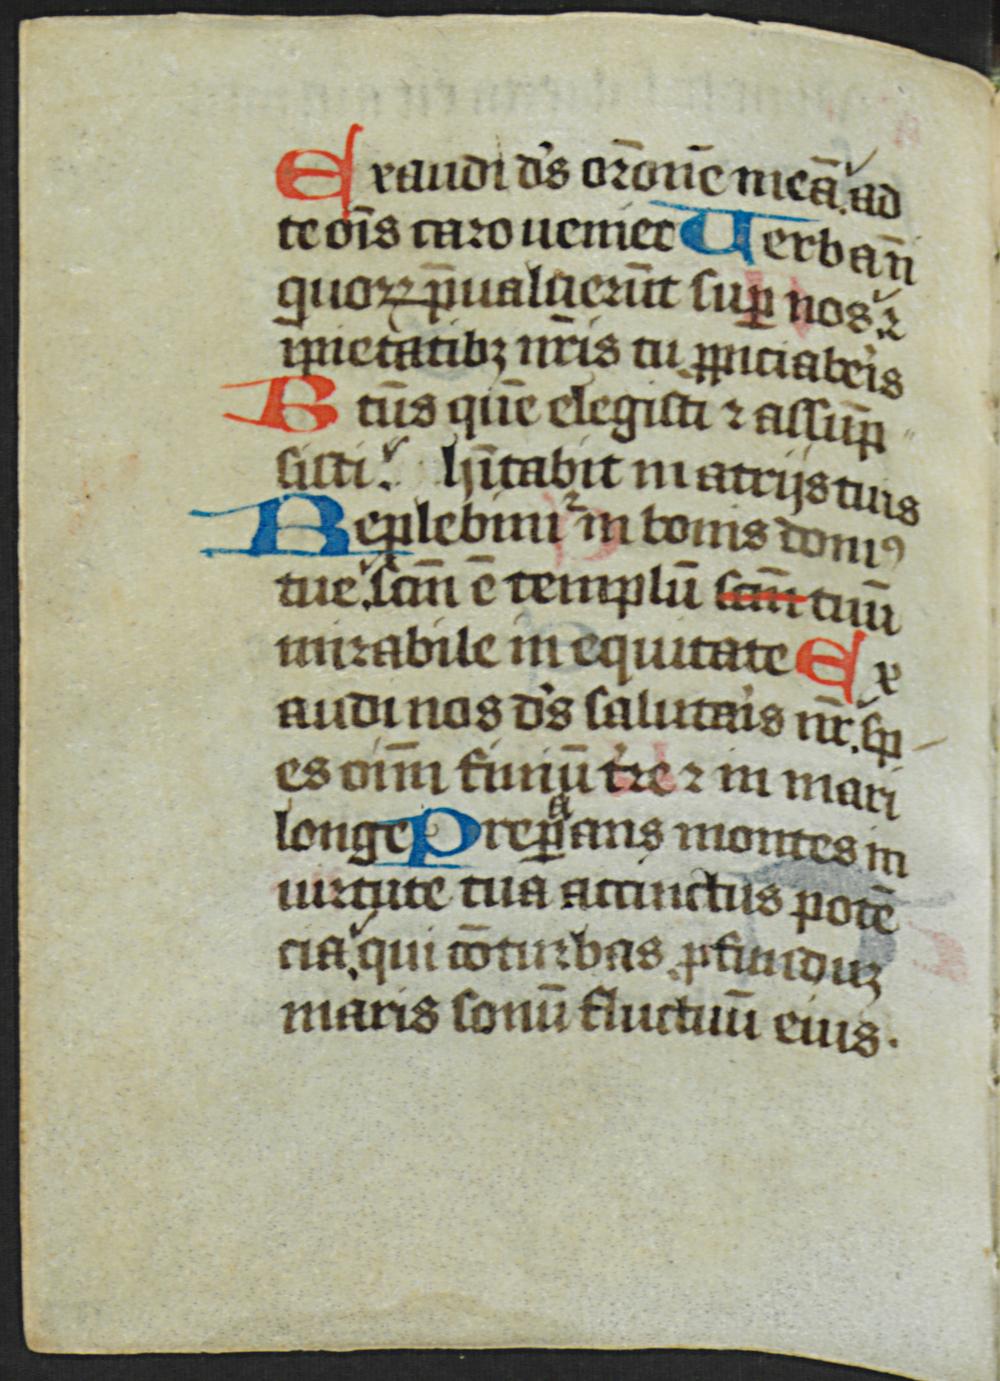 Exaudi ds̄ or̄onē meā. ad
te oīs caro ueniet Uerba n̄
quoꝝ p̄ualuerūt suꝑ nos. ⁊
īpietatibꝫ nr̄is tu ꝓpiciabeis
Btūs quē elegisti ⁊ assūp
sisti. hītabit in atrijs tuis
Reꝑlebimur in bonis domꝰ
tue. scm̄ ē templū scm̄ tuū
mirabile in equitate Ex
audi nos ds̄ salutaris nr̄. sp
es oīm finiū tr̄e ⁊ in mari
longe Preꝑans montes in
uirtute tua accinctus potē
cia. qui cōturbas ꝓfundūꝫ
maris sonū fluctuū eius.